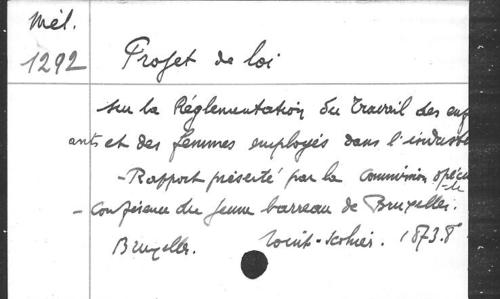 Mél.
1292
Projet de loi
sur la Réglementation du Travail des enf
ants et des femmes employés dans l'industrie
- Rapport présenté par la Commission spécia
-le
- Conférence du Jeune barreau de Bruxelles.
Bruxelles. 1873. 8°